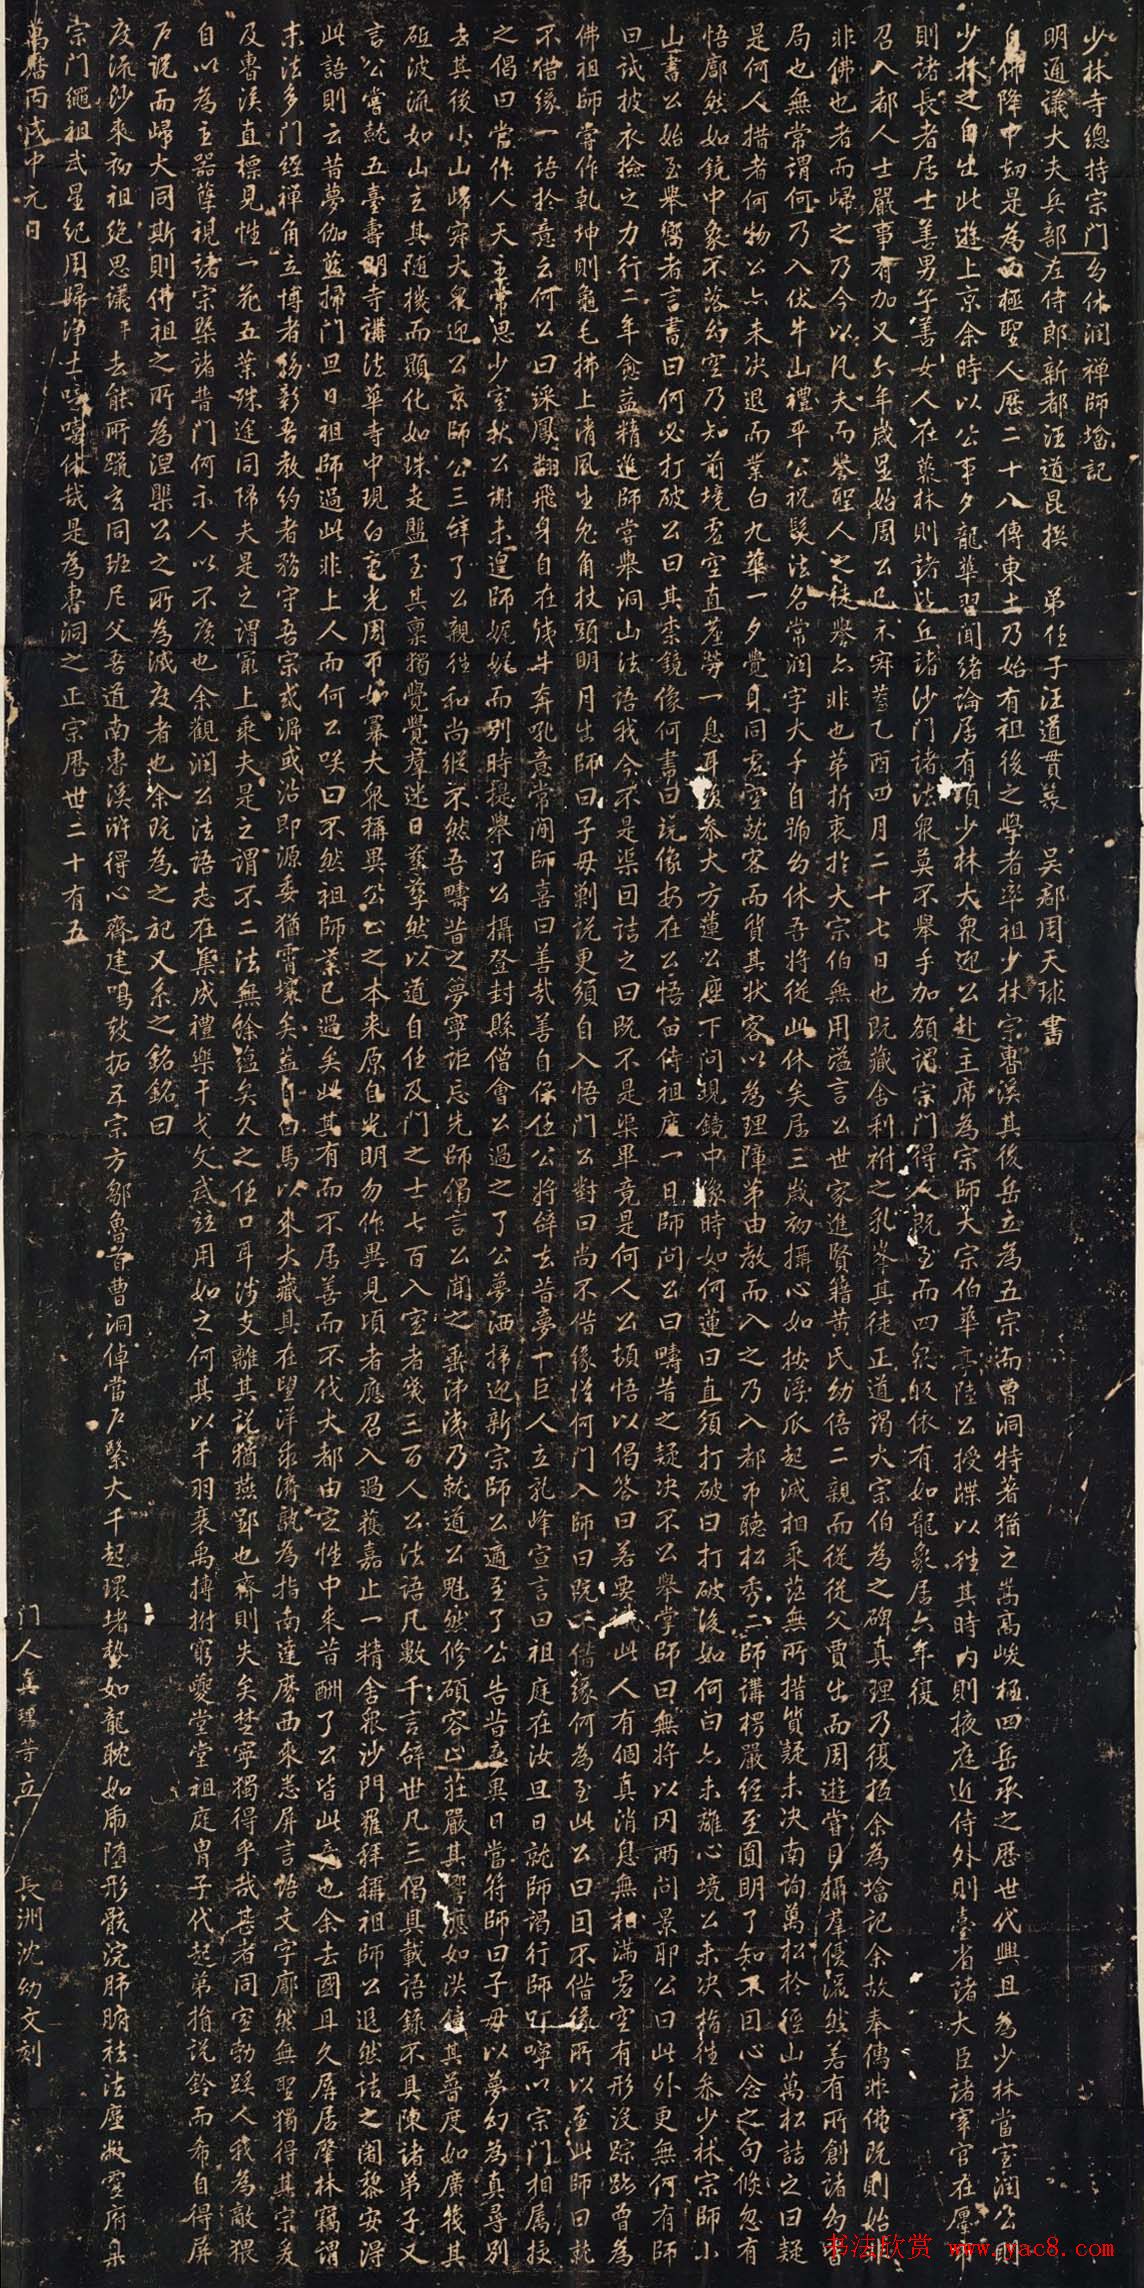 少林寺總持宗門幻休潤禪師墖記
明通議大夫兵部左侍郎新都汪道昆撰 弟任子汪道貫篆 吳郡周天球書
自佛降中刼是為西極聖人歷二十八傳東土乃始有祖後之學者率祖少林宗曹溪其後岳立為五宗而曹洞特著猶之嵩高峻極四岳承之歷世代興且為少林當室潤公則
少林之自出此遊上京余時以公事夕龍華習聞緒論居有頃少林大衆迎公赴主席為宗師大宗伯華亭陸公授牒以往其時內則掖庭近侍外則臺省諸大臣諸宰官在
則諸長者居士善男子善女人在叢林則諸比丘諸沙門諸法衆莫不舉手加額謂宗門得人既至而四衆皈依有如龍象居六年復
召入都人士嚴事有加又六年歲星始周公已不宑葢乙酉四月二十七日也既藏舍利祔之乳峯其徒正道謁大宗伯為之碑真理乃復抵余為墖記余故奉儒非佛既則始
非佛也者而歸之乃今以凡夫而譽聖人之徒譽亦非也第折衷於大宗伯無用溢言公世家進賢籍黃氏幼倍二親而從從父賈出而周遊當目攝羣優滛然若有所創諸幻
局也無常謂何乃入伏牛山禮平公祝髮法名常潤字大千自號幻休吾將從此休矣居三歲初攝心如按浮瓜起滅相乘茫無所措質疑未決南詢萬松於徑山萬松詰之曰疑
是何人措者何物公亦未決退而業白九華一夕覺身同虛空就客而貨其狀客以為理障第由教而入之乃入都市聽松秀二師講楞嚴經至圓明了知不因心念之句倐忽有
悟廓然如鏡中象不落幻空乃知前境虛空直差勞一息耳後參大方蓮公座下問現鏡中像時如何蓮曰直須打破曰打破後如何曰亦未離心境公未決指往參少林宗師小
山書公始至舉嚮者言書曰何必打破公曰其柰鏡像何書曰說像安在公悟留侍祖庭一日師問公曰疇昔之疑決不公舉掌師曰無將以罔兩問景耶公曰此外更無何有師
曰試披衣撿之力行二年愈益精進師嘗舉洞山法語我今不是渠因詰之曰既不是渠畢竟是何人公頓悟以偈答曰若要識此人有個真消息無相滿虛空有形沒踪跡曾為
佛祖師嘗作乾坤則龜毛拂上清風生兔角杖頭明月出師曰子毋剿說更須自入悟門公對曰尚不借緣從何門入師曰既不借緣何為至此公曰因不借緣所以至此師曰就
不借緣一語於意云何公曰深鳳翻飛身自在銕牛奔吼意常閒師喜曰善哉善自保任公將辭去昔夢一巨人立孔峰宣言曰祖庭在汝旦日就師謁行師叮嚀以宗門相屬授
之偈曰當作人天主常思少室秋公謝未遑師娓娓而別時提舉了公攝登封縣僧會公過之了公夢洒掃迎新宗師公適至了公告昔異日當符師曰子毋以夢幻為真尋別
去其後小山歸宑大衆迎公京師公三辭了公親往和尚縱不然吾疇昔之夢寧詎忘先師偈言公聞之垂涕洟乃就道公魁然修碩容止莊嚴其響應如洪鐘其普度如廣筏其
砥波流如山立其随機而顯化如珠走盤至其稟獨覺覺羣迷日孳孳然以道自任及門之士七百入室者僅三百人公法語凡數千言辭世凡三偈具載語錄不具陳諸弟子又
言公嘗就五臺壽明寺講法華寺中現白毫光周帀如冪大衆稱異公公之本來原自光明勿作異見頃者應召入過䕶嘉止一精舍衆沙門羅拜稱祖師公退然詰之闍黎安得
此語則云昔夢伽藍掃門旦日祖師過此非上人而何公咲曰不然祖師業已過矣此其有而不居善而不伐大都由空性中來昔酬了公皆此意也余去國且久屏居肇林竊謂
末法多門經禪角立博者務彰吾教約者務守吾宗或泝或沿即源委猶霄壤矣葢自白馬以來大藏具在望洋求濟孰為指南達磨西來悉屏言詮文字廓然無聖獨得其宗爰
及曹溪直標見性一花五葉殊途同歸夫是之謂最上乘夫是之謂不二法無餘蘊矣久之任口耳涉支離其説猶燕郢也齊則失矣楚寧獨得乎哉甚者同室勃蹊人我為敵猥
自以為主器孽視諸宗槩諸普門何示人以不廣也余觀潤公法語志在集成禮樂干戈文武竝用如之何其以干羽裵禹搏拊窮夔堂堂祖庭胄子代起弟指説鈴而希自得屏
尸説而歸大同斯則佛祖之所為湼槃公之所為滅度者也余既為之記又系之銘銘曰
度流沙來初祖絕思議去能所躐玄同班尼父吾道南曹溪滸得心齋建鳴鼓拓五宗方鄒魯首曹洞倬當戶繫大千起環堵埶如龍眈如虎墮形骸浣肺腑袪法塵凝靈府
宗門繩祖武星紀用歸淨土嘻嘻休哉是為曹洞之正宗歷世二十有五
萬曆丙戌中元日
門人真理等立 長洲沈幼文刻
书法欣赏 www.yac8.com